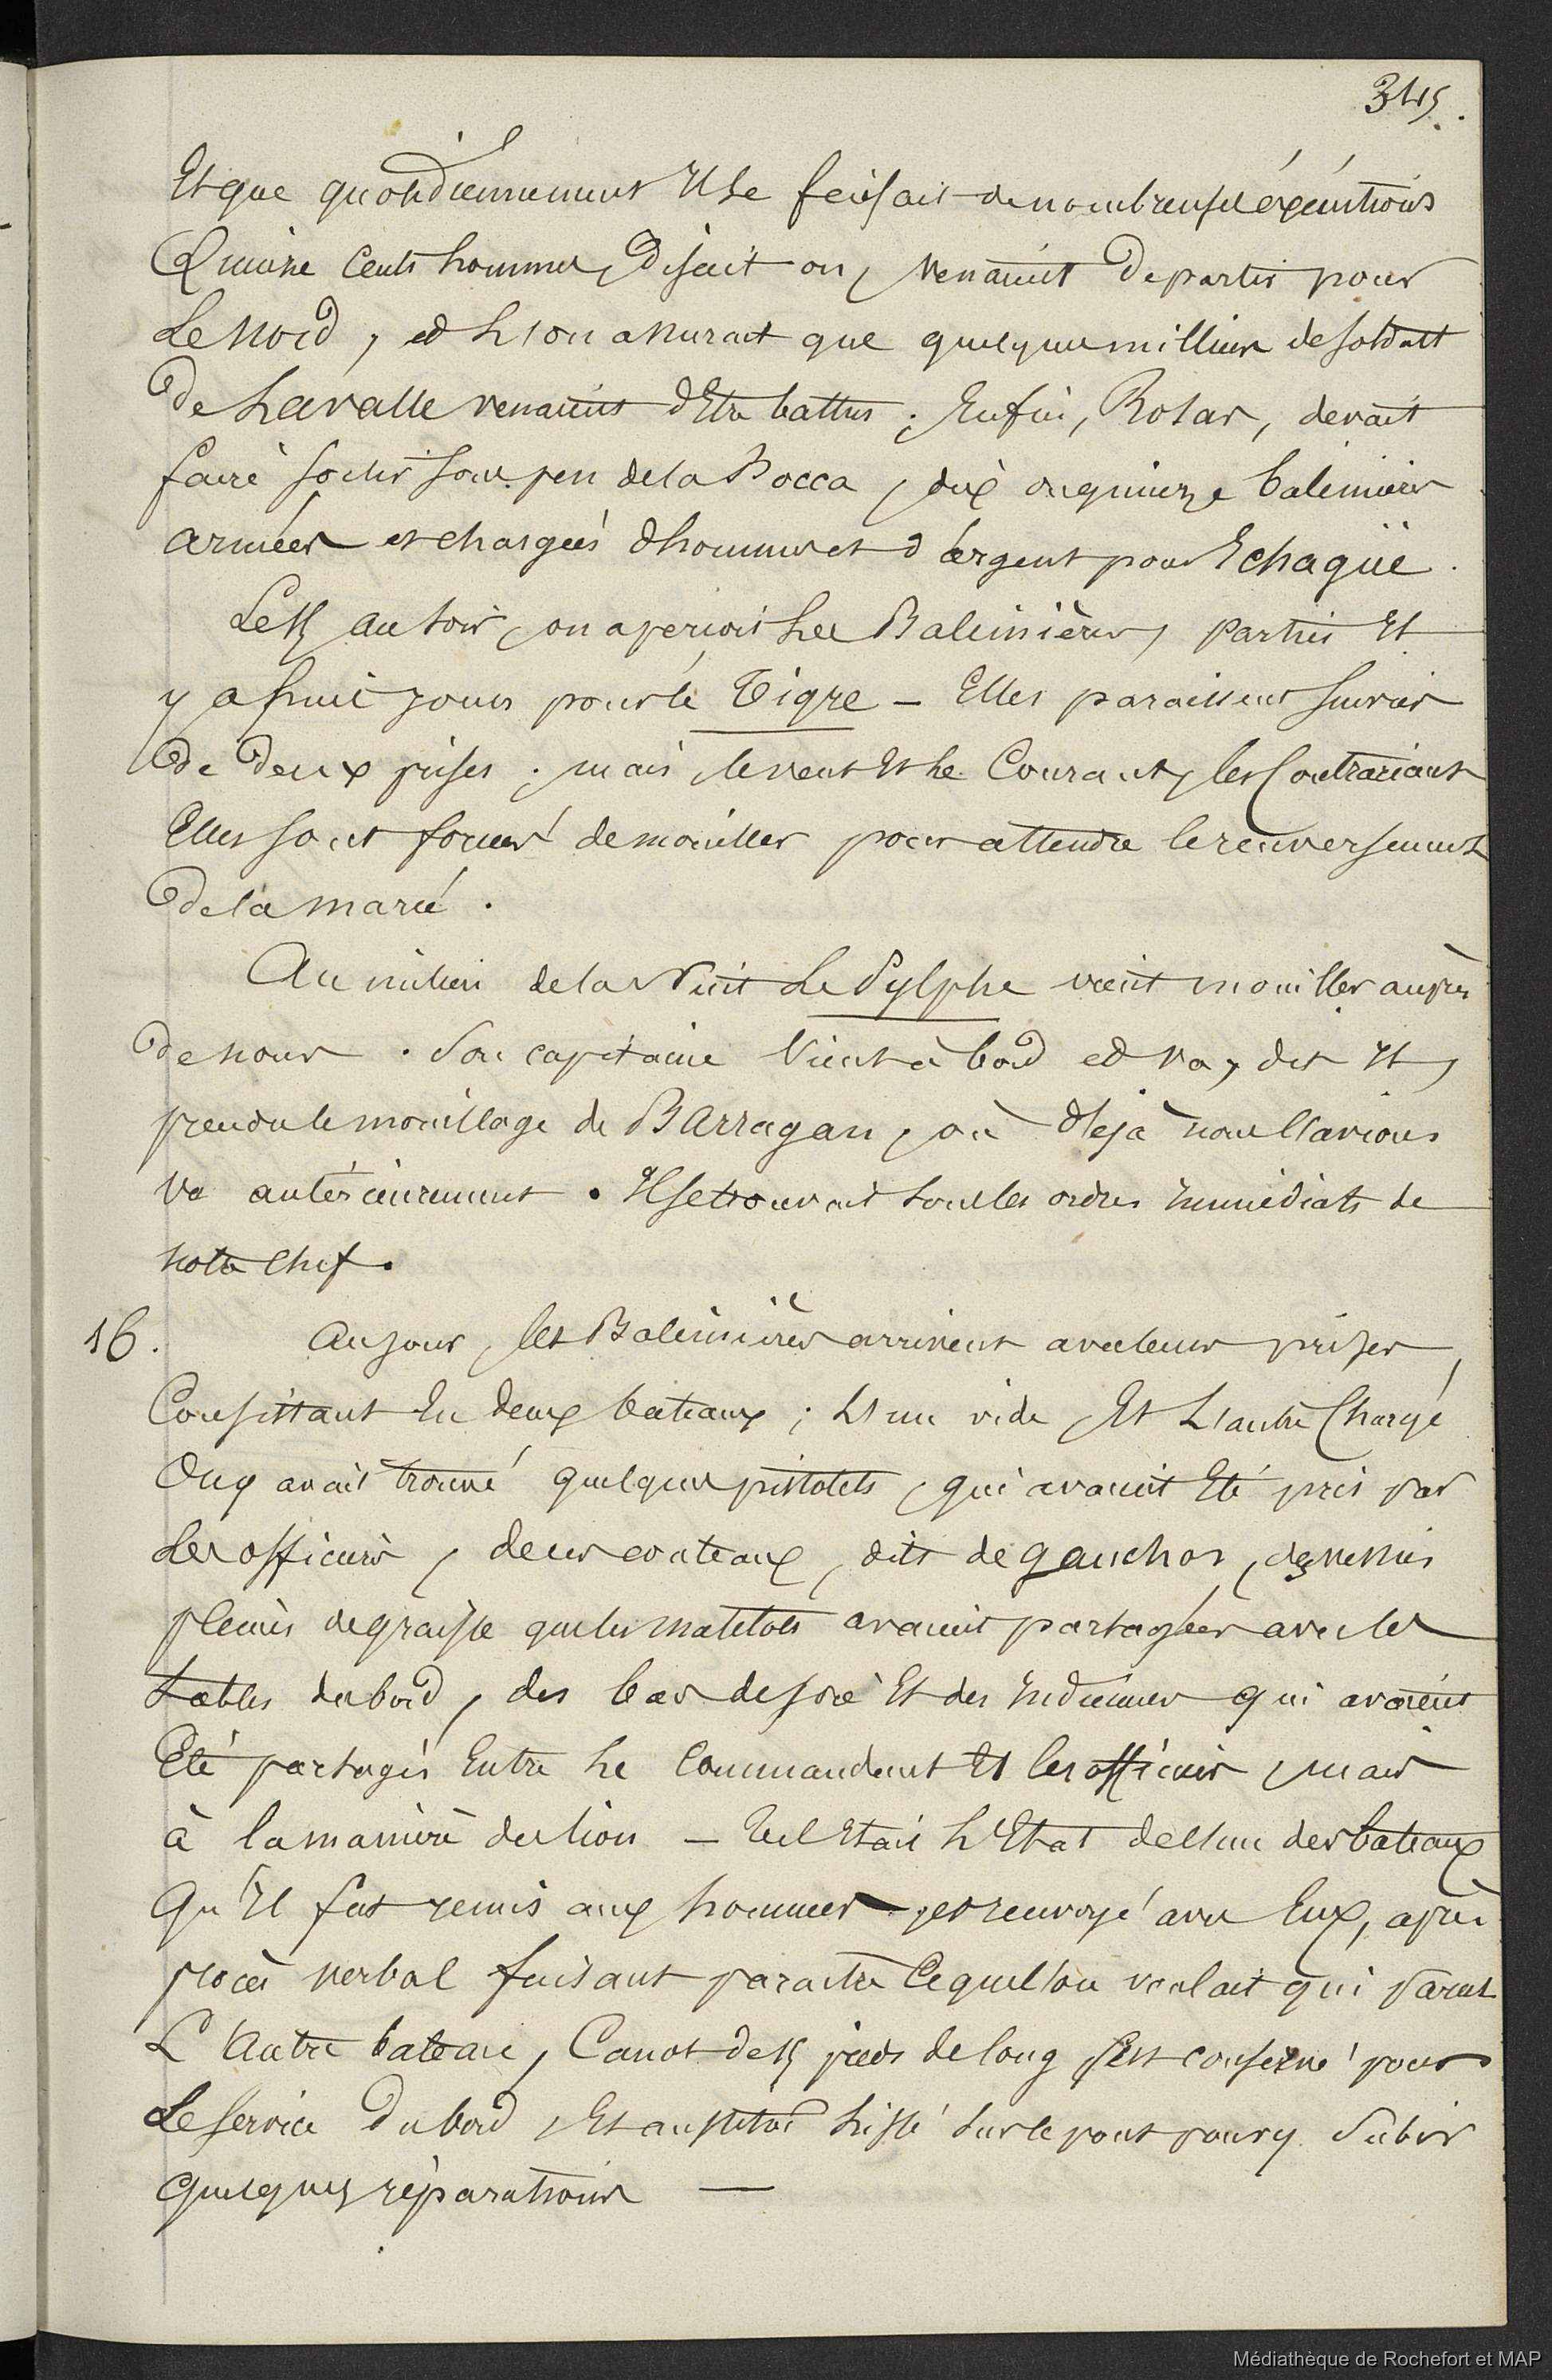 345.
Et que quotidiennement Il se faisait de nombreuses éxécutions
Quinze Cents hommes, Disait on, venaient De partir pour
Le Nord, et L'on assurait que quelques milliers de soldats
De Lavalle venaient d'Etre battus ; Enfin, Rosas, devait
faire sortir sous peu de la Bocca, dix ou quinze balinières
armées et chargées d'hommes et d'argent pour Echagüe.
Le 15 au soir, on aperçois Les Balinières, parties Il
y a huit jours pour le Tigre — Elles paraissent suivies
De Deux prises. mais, le vent Et Le Courant, les Contrariant
Elles sont forcées de mouiller pour attendre le renversement
De la marée.
Au milieu de la Nuit Le Sylphe vient mouiller auprès
De nous. Son capitaine Vient à bord et va, dit Il,
prendre le mouillage de Barragan, où déjà nous l'avions
vu antérieurement. Il se trouvait sous les ordres Immédiats de
notre Chef.
16. Au jour, les Balinières arrivent avec leurs prises,
Consistant En deux bateaux ; L'un vide, Et L'autre Chargé
On y avait trouvé quelques pistolets, qui avaient Eté pris par
Les officiers, deux couteaux, dits de gauchos, des vessies
pleines de graisse que les matelots avaient partagées avec les
tables du bord, des bas de soie Et des Indiennes qui avaient
Eté partagés Entre Le Commandant Et les officiers, mais
à la manière du lion — Tel Etait L'Etat de l'un des bateaux
Qu'Il fut remis aux hommes, et renvoyé avec Eux, après
procès verbal faisant paraître Ce que l'on voulait qui parut
L'Autre bateau, Canot de 15 pieds de long, Est conservé pour
Le service Du bord, Et aussitôt hissé sur le pont pour y Subir
Quelques réparations —
Médiathèque de Rochefort et MAP